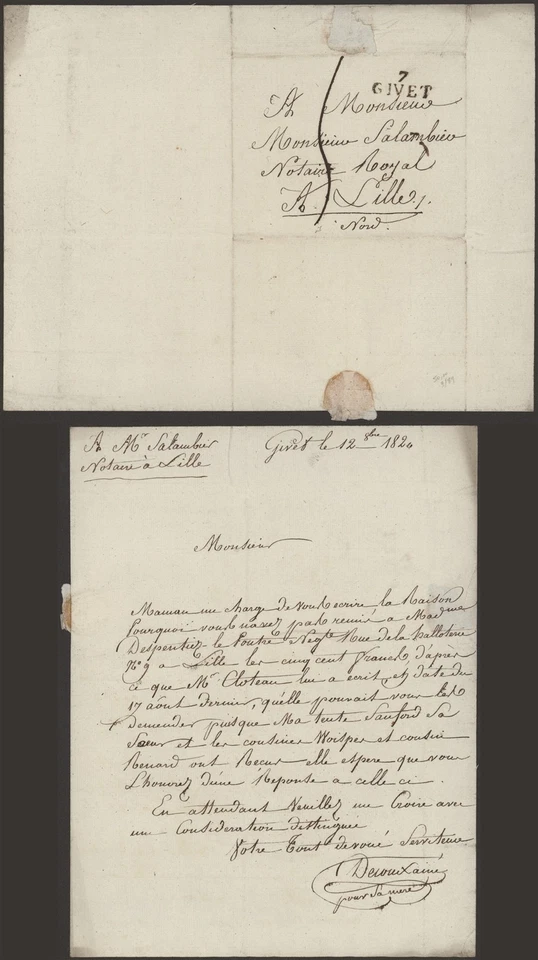 7
GIVET
A Monsieur
Monsieur Salambier
Notaire Royal
A Lille
Nord.
A Mr Salambier
Notaire à Lille
Givet le 12 8bre 1820
Monsieur
Maman me charge de vous écrire la Raison
Pourquoi vous navez pas remis a Madme
Despentiez le Poutre Negte Rue de la
No 9 a Lille les cinq cent francs d'après
ce que Mr Cloteau lui a ecrit, et date du
17 août dernier, qu'elle pouvait vous les
demender puisque Ma tente Sauford Sa
Sœur et les cousines Woisper et cousin
Renard ont Recus elle espere que vous
L'honorez d'une Reponse a celle ci.
En attendant Veuillez me Croire avec
une Consideration distinguée
Votre Tout devoué Serviteur
Derouxainé
pour Sa mere